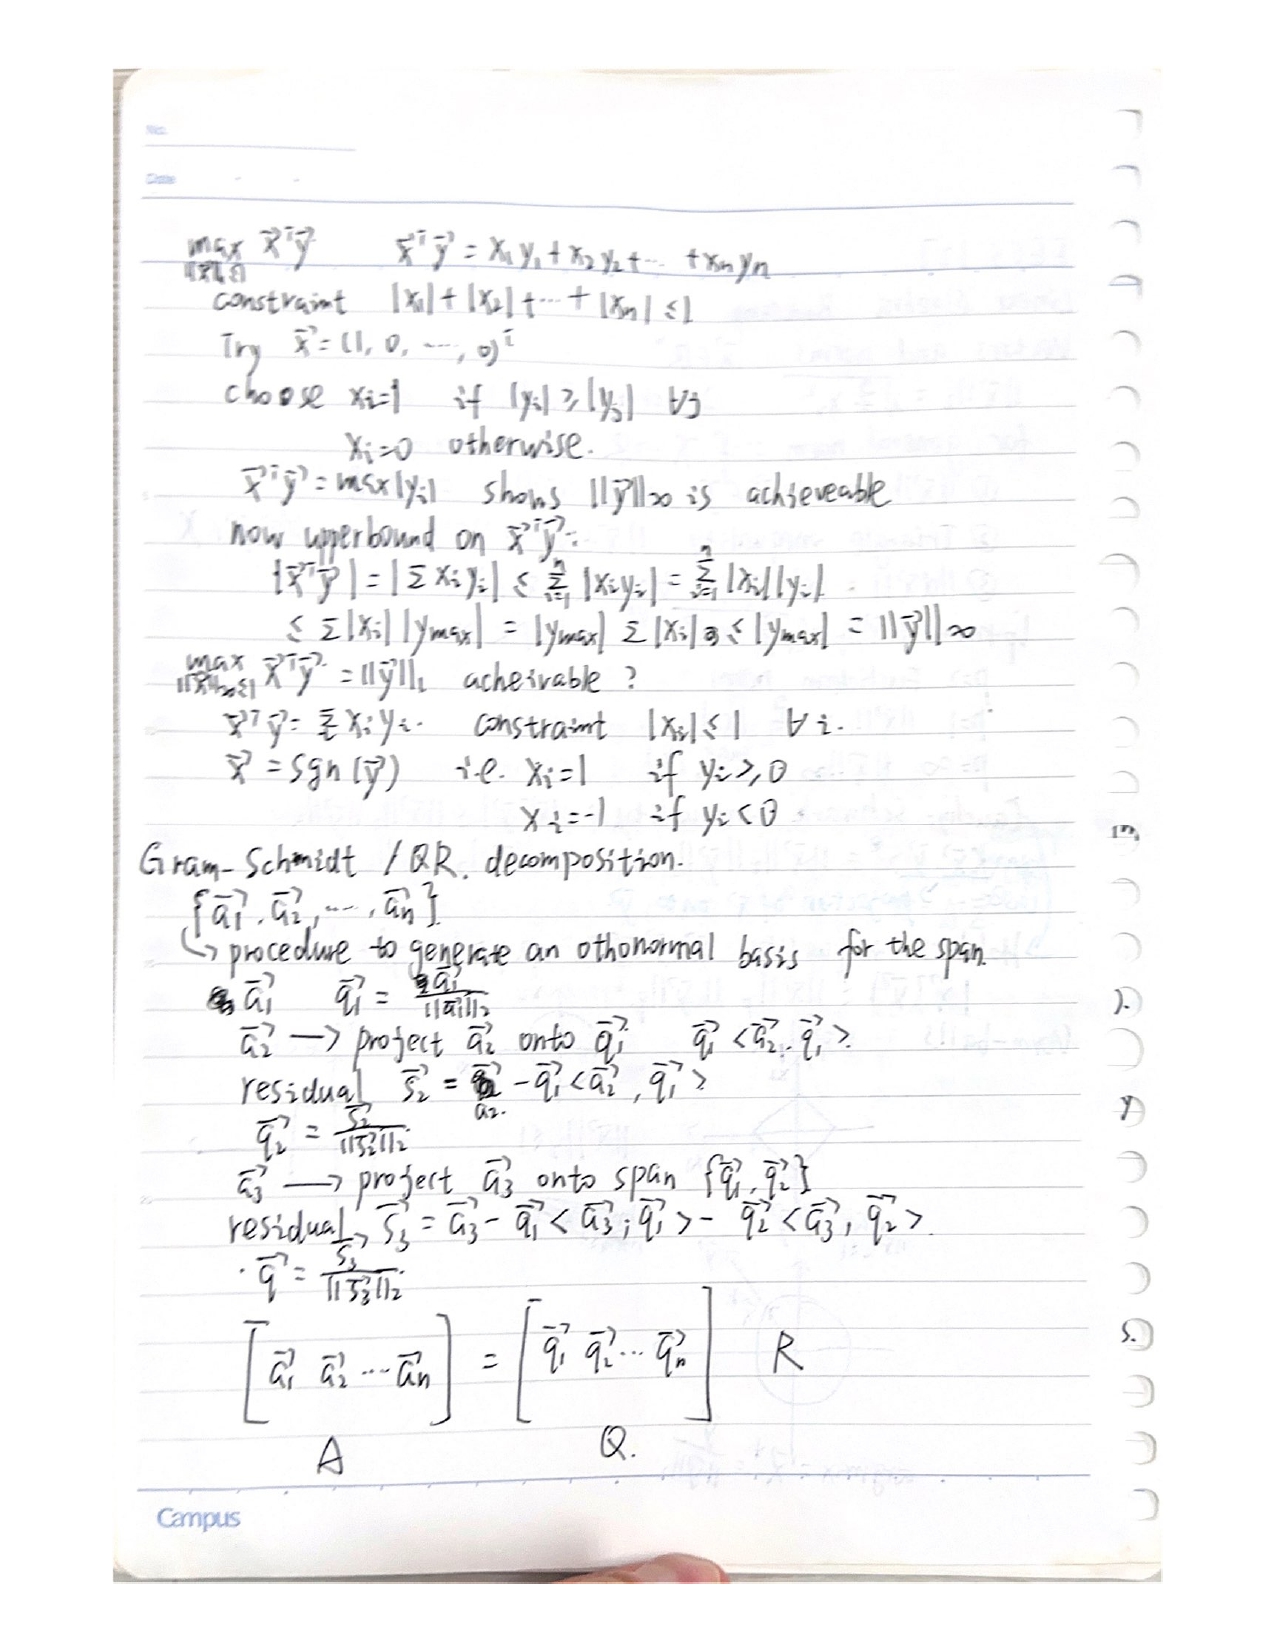 No.
Date
max x⃗ᵀy⃗    x⃗ᵀy⃗ = x₁y₁+x₂y₂+··· +xₙyₙ
||x⃗||₁≤1
constraint |x₁|+|x₂|+···+|xₙ| ≤1
Try x⃗=(1, 0, ···, 0)ᵀ
choose xᵢ=1 if |yᵢ| ≥ |yⱼ| ∀j
xᵢ=0 otherwise.
x⃗ᵀy⃗ = max|yᵢ| shows ||y⃗||∞ is achieveable
now upperbound on x⃗ᵀy⃗:
|x⃗ᵀy⃗| = |Σxᵢyᵢ| ≤ Σⁿᵢ₌₁ |xᵢyᵢ| = Σⁿᵢ₌₁ |xᵢ||yᵢ|
≤ Σ|xᵢ||y_max| = |y_max| Σ|xᵢ| ≤ |y_max| = ||y⃗||∞
max x⃗ᵀy⃗ = ||y⃗||₁ acheivable ?
||x⃗||∞≤1
x⃗ᵀy⃗ = Σᵢ xᵢyᵢ. constraint |xᵢ| ≤ 1 ∀ i.
x⃗ = sgn(y⃗) i.e. xᵢ=1 if yᵢ ≥ 0
xᵢ=-1 if yᵢ < 0
Gram-Schmidt / QR. decomposition.
{a⃗₁, a⃗₂, ···, a⃗ₙ}
↳ procedure to generate an othonormal basis for the span.
a⃗₁ q⃗₁ = a⃗₁/||a⃗₁||₂
a⃗₂ → project a⃗₂ onto q⃗₁ q⃗₁<a⃗₂, q⃗₁>.
residual s⃗₂ = a⃗₂ - q⃗₁<a⃗₂, q⃗₁>
q⃗₂ = s⃗₂/||s⃗₂||₂.
a⃗₃ → project a⃗₃ onto span {q⃗₁, q⃗₂}
residual, s⃗₃ = a⃗₃ - q⃗₁<a⃗₃, q⃗₁> - q⃗₂<a⃗₃, q⃗₂>.
q⃗ = s⃗₃/||s⃗₃||₂.
[a⃗₁ a⃗₂ ··· a⃗ₙ] = [q⃗₁ q⃗₂ ··· q⃗ₙ] R
A Q.
Campus